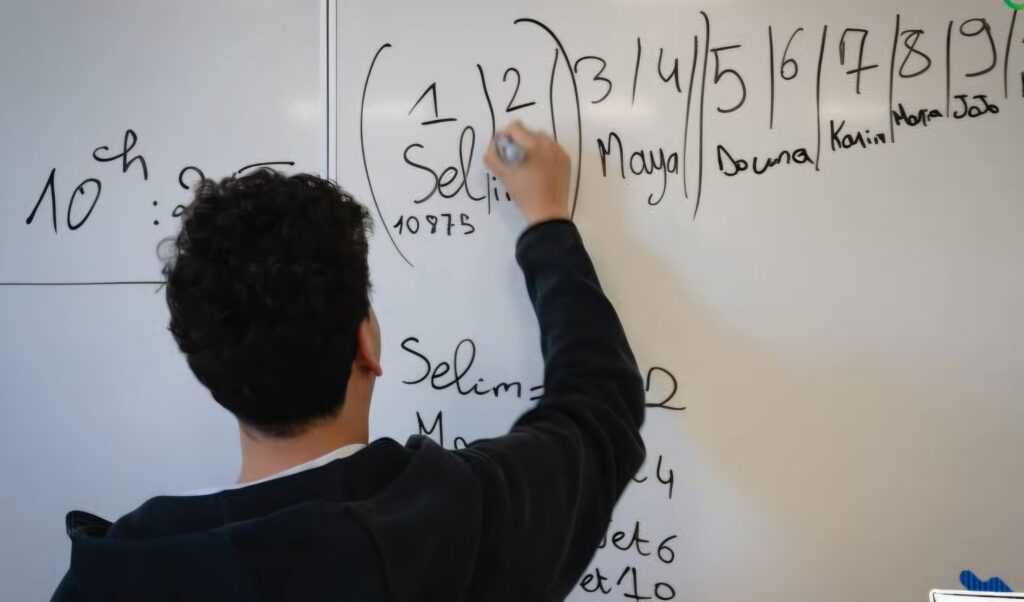 1 | 2 | 3 | 4 | 5 | 6 | 7 | 8 | 9 |
Selim Maya Douma Karim Maria JoJo
10875
10ch :
Selim=
2
4
et 6
et 10